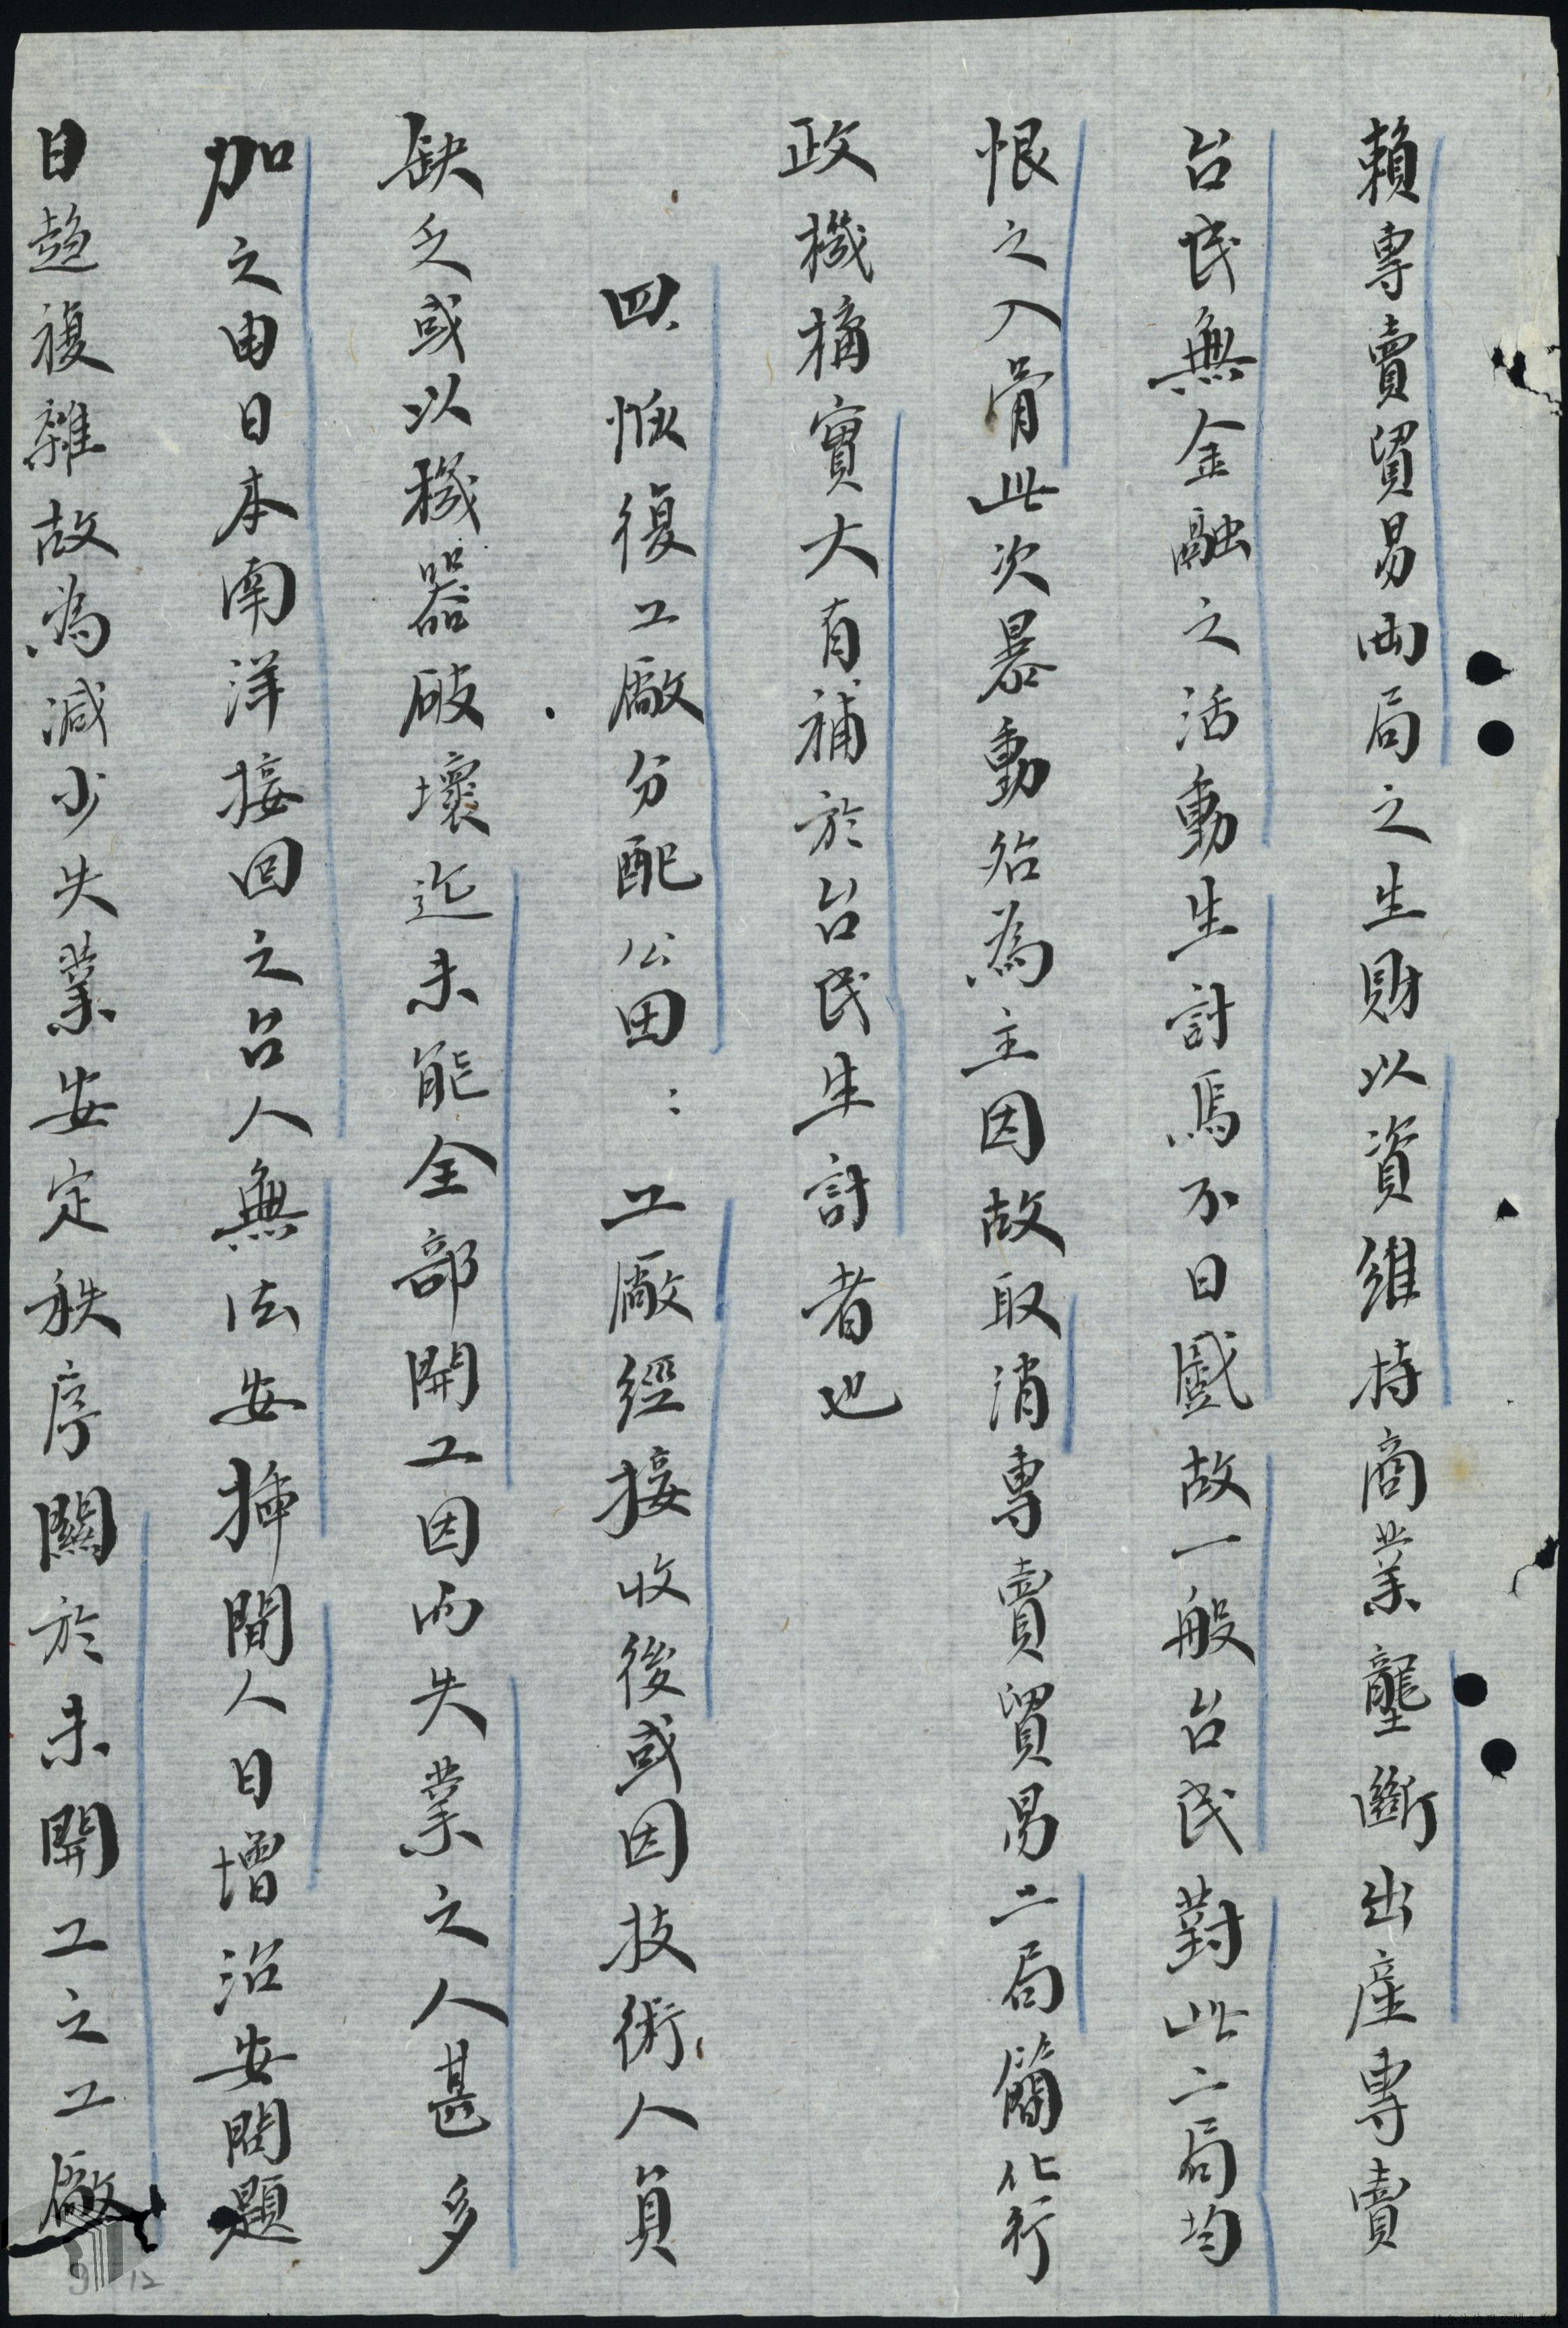 賴專賣貿易两局之生財以資維持商業壟斷出產專賣
台民無金融之活動生計焉不日蹙故一般台民對此二局均
恨之入骨此次暴動殆為主因故取消專賣貿易二局簡化行
政機構實大有補於台民生計者也
四、恢復工廠分配公田：工廠經接收後或因技術人員
缺乏或以機器破壞迄未能全部開工因而失業之人甚多
加之由日本南洋接回之台人無法安插閒人日增治安問題
日趨複雜故為減少失業安定秩序關於未開工之工廠
9 12